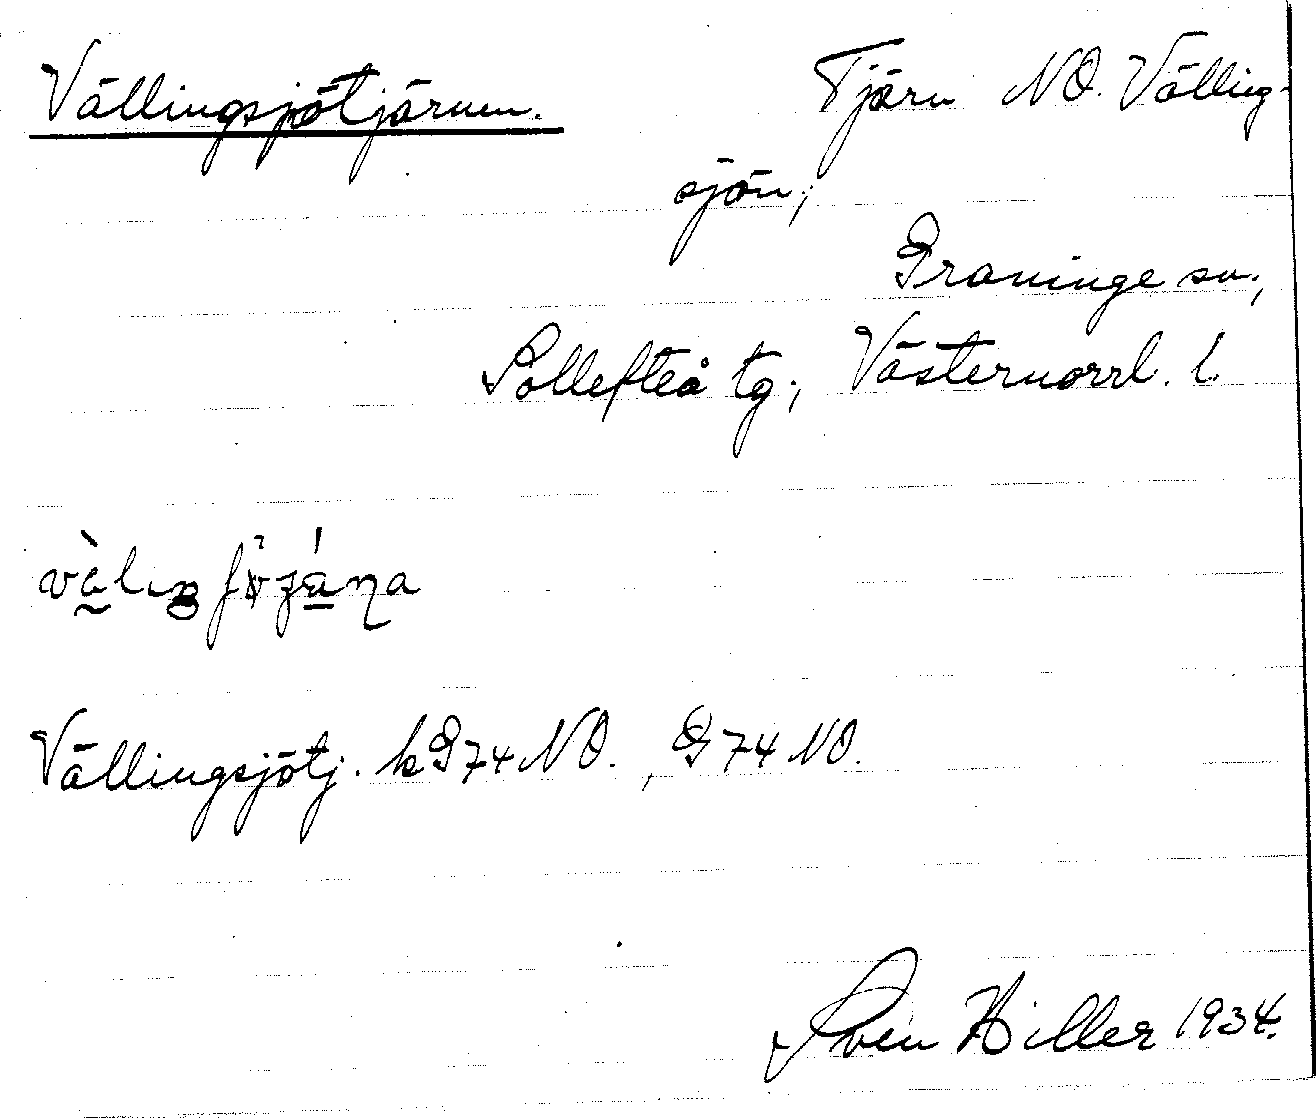 Vällingsjötjärnen. Tjärn NO. Välling-
sjön;
Graninge sn.,
Sollefteå tg., Västernorrl. l.
Vällingsjötj. kG74NO., G74NO.
Sven Hiller 1934.